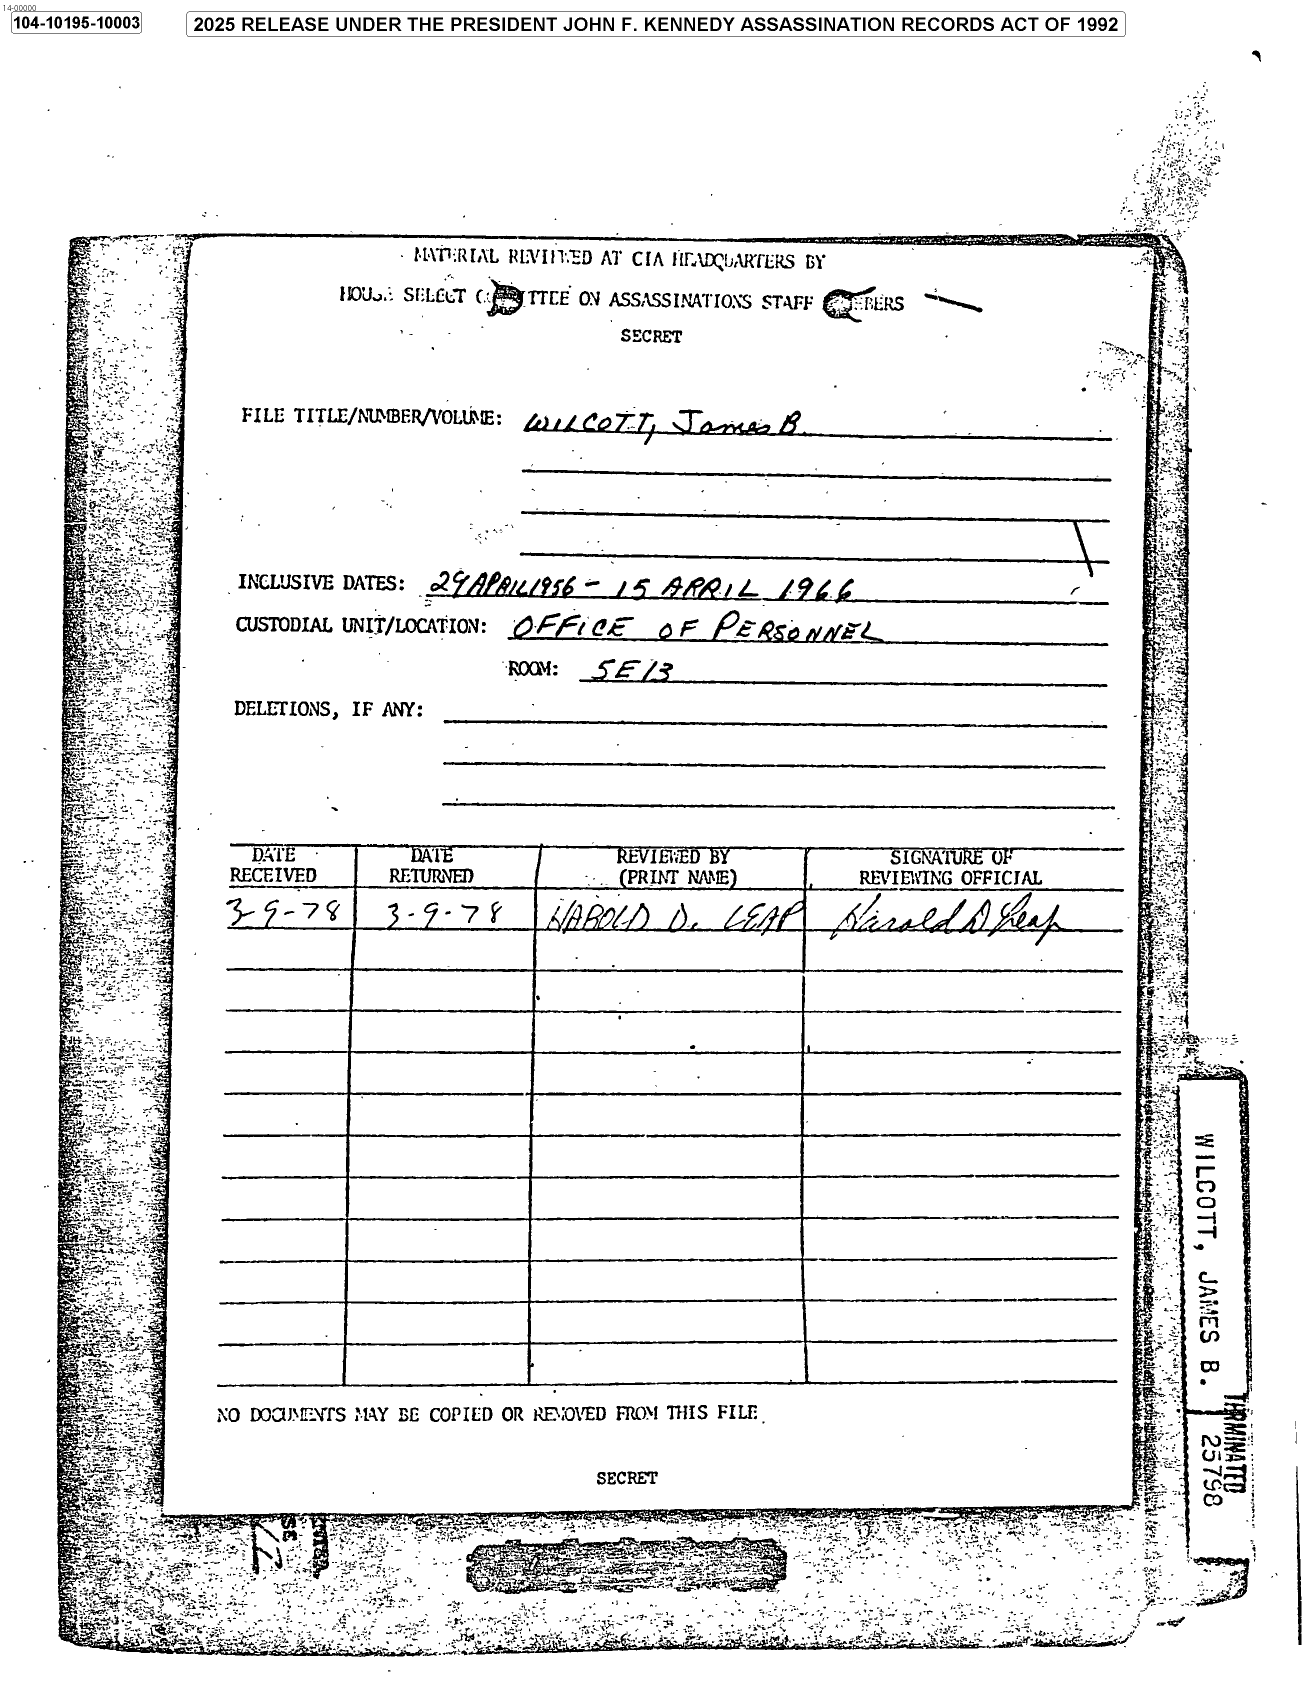 14-00000
104-10195-10003
2025 RELEASE UNDER THE PRESIDENT JOHN F. KENNEDY ASSASSINATION RECORDS ACT OF 1992
MATERIAL REVIEWED AT CIA HEADQUARTERS BY
HOUSE SELECT COMMITTEE ON ASSASSINATIONS STAFF MEMBERS
SECRET
FILE TITLE/NUMBER/VOLUME: WILCOTT, James B.
INCLUSIVE DATES: 29 APRIL 1956 - 15 APRIL 1966
CUSTODIAL UNIT/LOCATION: OFFICE OF PERSONNEL
ROOM: 5E13
DELETIONS, IF ANY:
DATE RECEIVED DATE RETURNED REVIEWED BY (PRINT NAME) SIGNATURE OF REVIEWING OFFICIAL
3-9-78 3-9-78 HAROLD D. LEAP Harold D Leap
NO DOCUMENTS MAY BE COPIED OR REMOVED FROM THIS FILE
SECRET
WILCOTT, JAMES B.
25798
TERMINATED